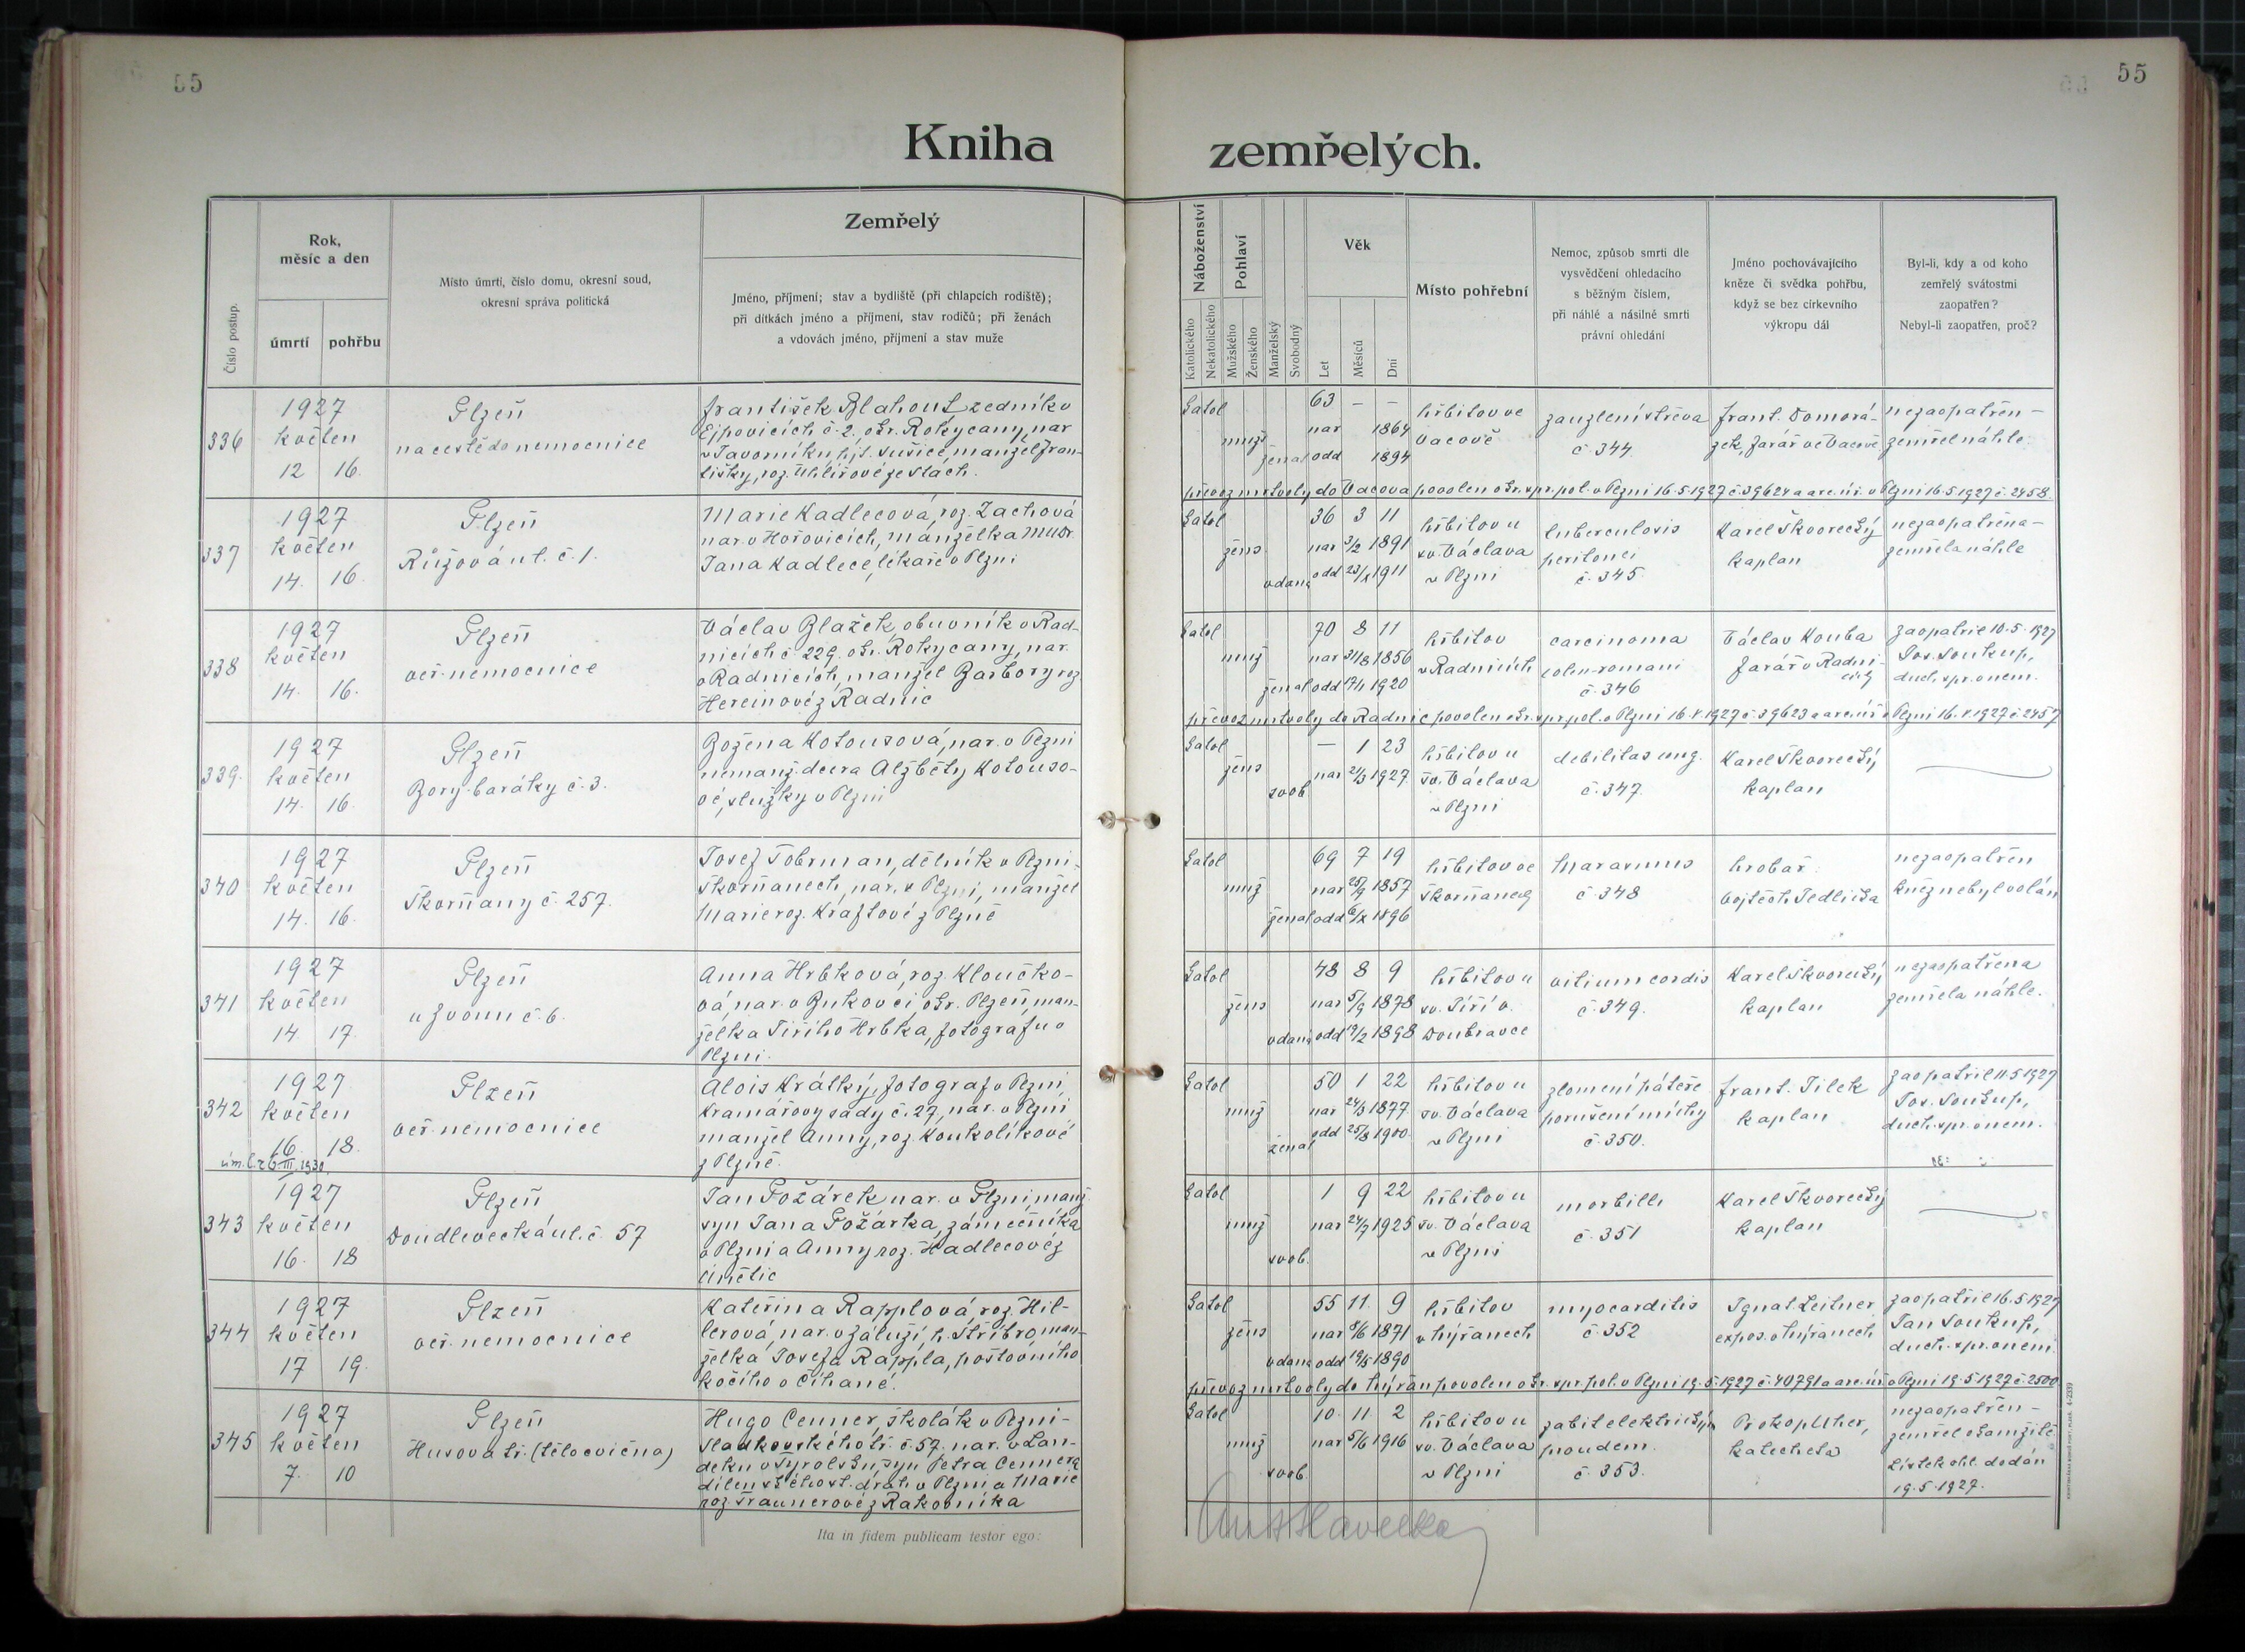 55
55
Kniha
zemřelých.
Číslo postup.
Rok,
měsíc a den
úmrtí
pohřbu
Místo úmrtí, číslo domu, okresní soud,
okresní správa politická
Zemřelý
Jméno, příjmení; stav a bydliště (při chlapcích rodiště);
při dítkách jméno a příjmení, stav rodičů; při ženách
a vdovách jméno, příjmení a stav muže
Náboženství
Katolického
Nekatolického
Pohlaví
Mužského
Ženského
Manželský
Svobodný
Věk
Let
Měsíců
Dní
Místo pohřební
Nemoc, způsob smrti dle
vysvědčení ohledacího
s běžným číslem,
při náhlé a násilné smrti
právní ohledání
Jméno pochovávajícího
kněze či svědka pohřbu,
když se bez církevního
výkropu dál
Byl-li, kdy a od koho
zemřelý svátostmi
zaopatřen?
Nebyl-li zaopatřen, proč?
336
1927
květen
12 16.
Plzeň
na cestě do nemocnice
František Blahout zedník v
Ejpovicích č. 2, okr. Rokycany, nar
v Javorníku, h.j.t. Sušice, manžel Fran-
tišky, roz. Uhlířové ze Stach.
katol
muž
ženat
63 – –
nar 1864
odd 1894
hřbitov ve
Vacově
zauzlení střeva
č. 344
Frant. Domorá-
zek, farář ve Vacově
nezaopatřen –
zemřel náhle
převoz mrtvoly do Vacova povolen okr. spr. pol. v Plzni 16.5.1927 č. 39624 a arc. úř. v Plzni 16.5.1927 č. 2458.
337
1927
květen
14. 16.
Plzeň
Růžová ul. č. 1.
Marie Kadlecová, roz. Zachová
nar. v Hořovicích, manželka MUDr.
Jana Kadlece, lékaře v Plzni
katol
žens
vdaná
36 3 11
nar 3/2 1891
odd 23/X 1911
hřbitov u
sv. Václava
v Plzni
tuberculosis
peritonei
č. 345
Karel Škvorecký
kaplan
nezaopatřena –
zemřela náhle
338
1927
květen
14. 16.
Plzeň
veř. nemocnice
Václav Blažek, obuvník v Rad-
nicích č. 229. okr. Rokycany, nar.
v Radnicích, manžel Barbory roz
Hereinové z Radnic
katol
muž
ženat
70 8 11
nar 31/8 1856
odd 17/1 1920
hřbitov
v Radnicích
carcinoma
colm-romani
č. 346
Václav Kouba
farář v Radni-
cích
zaopatřil 10.5.1927
Jos. Soukup,
duch. spr. v nem.
převoz mrtvoly do Radnic povolen okr. spr. pol. v Plzni 16.V.1927 č. 39623 a arc. úř. v Plzni 16.V.1927 č. 2457
339.
1927
květen
14. 16.
Plzeň
Bory-baráky č. 3.
Božena Kotousová, nar. v Plzni
nemanž. dcera Alžběty Kotouso-
vé, služky v Plzni
katol
žens
svob
– 1 23
nar 21/3 1927.
hřbitov u
sv. Václava
v Plzni
debilitas cong.
č. 347.
Karel Škvorecký
kaplan
340
1927
květen
14. 16.
Plzeň
Skvrňany č. 257.
Josef Tobrman, dělník v Plzni-
Skvrňanech, nar. v Plzni, manžel
Marie roz. Kraftové z Plzně
katol
muž
ženat
69 7 19
nar 25/9 1857
odd 6/X 1896
hřbitov ve
Skvrňanech
Marasmus
č. 348
hrobař
Vojtěch Jedlička
nezaopatřen
kněz nebyl volán
341
1927
květen
14. 17.
Plzeň
u Zvonu č. 6.
Anna Hrbková, roz. Kloučko-
vá, nar. v Bukovci, okr. Plzeň, man-
želka Jiřího Hrbka, fotografu v
Plzni.
katol
žens
vdaná
48 8 9
nar 5/9 1878
odd 19/2 1898
hřbitov u
sv. Jiří v
Doubravce
vitium cordis
č. 349.
Karel Škvorecký
kaplan
nezaopatřena
zemřela náhle.
342
1927
květen
16 18.
úm. l. z 6.III.1930.
Plzeň
veř. nemocnice
Alois Krátký, fotograf v Plzni,
Kramářovy sady č. 27, nar. v Plzni
manžel Anny, roz. Koukolíkové
z Plzně.
katol
muž
ženat
50 1 22
nar 24/3 1877
odd 25/8 1900
hřbitov u
sv. Václava
v Plzni
zlomení páteře
porušení míchy
č. 350.
Frant. Jilek
kaplan
zaopatřil 11.5.1927
Jos. Soukup,
duch. spr. v nem.
343
1927
květen
16. 18
Plzeň
Doudlevecká ul. č. 57
Jan Požárek nar. v Plzni, manž.
syn Jana Požárka, zámečníka
v Plzni a Anny roz. Hadlecové z
Únětic
katol
muž
svob.
1 9 22
nar 24/7 1925
hřbitov u
sv. Václava
v Plzni
morbilli
č. 351
Karel Škvorecký
kaplan
344
1927
květen
17 19.
Plzeň
veř. nemocnice
Kateřina Rapplová, roz. Hil-
lerová, nar. v Záluží, h. Stříbro, man-
želka Josefa Rappla, poštovního
kočího v Číhané.
katol
žens
vdaná
55 11. 9
nar 8/6 1871
odd 19/5 1890
hřbitov
v Nýřanech
myocarditis
č. 352
Ignat. Leitner
expos. v Nýřanech
zaopatřil 16.5.1927
Jan Soukup,
duch. spr. v nem.
převoz mrtvoly do Nýřan povolen okr. spr. pol. v Plzni 19.5.1927 č. 40791 a arc. úř. v Plzni 19.5.1927 č. 2500
345
1927
květen
7. 10
Plzeň
Husova tř. (tělocvična)
Hugo Cenner, školák v Plzni –
Sladkovského tř. č. 57. nar. v Lan-
deku v Tyrolsku, syn Petra Cennera
dílenského st. dráh v Plzni a Marie
roz. Traunerové z Rakovníka
katol
muž
svob.
10. 11 2
nar 5/6 1916
hřbitov u
sv. Václava
v Plzni
zabit elektrickým
proudem.
č. 353.
Prokop Uher,
katecheta
nezaopatřen –
zemřel okamžitě
Lístek ohl. dodán
19.5.1927.
Ita in fidem publicam testor ego: